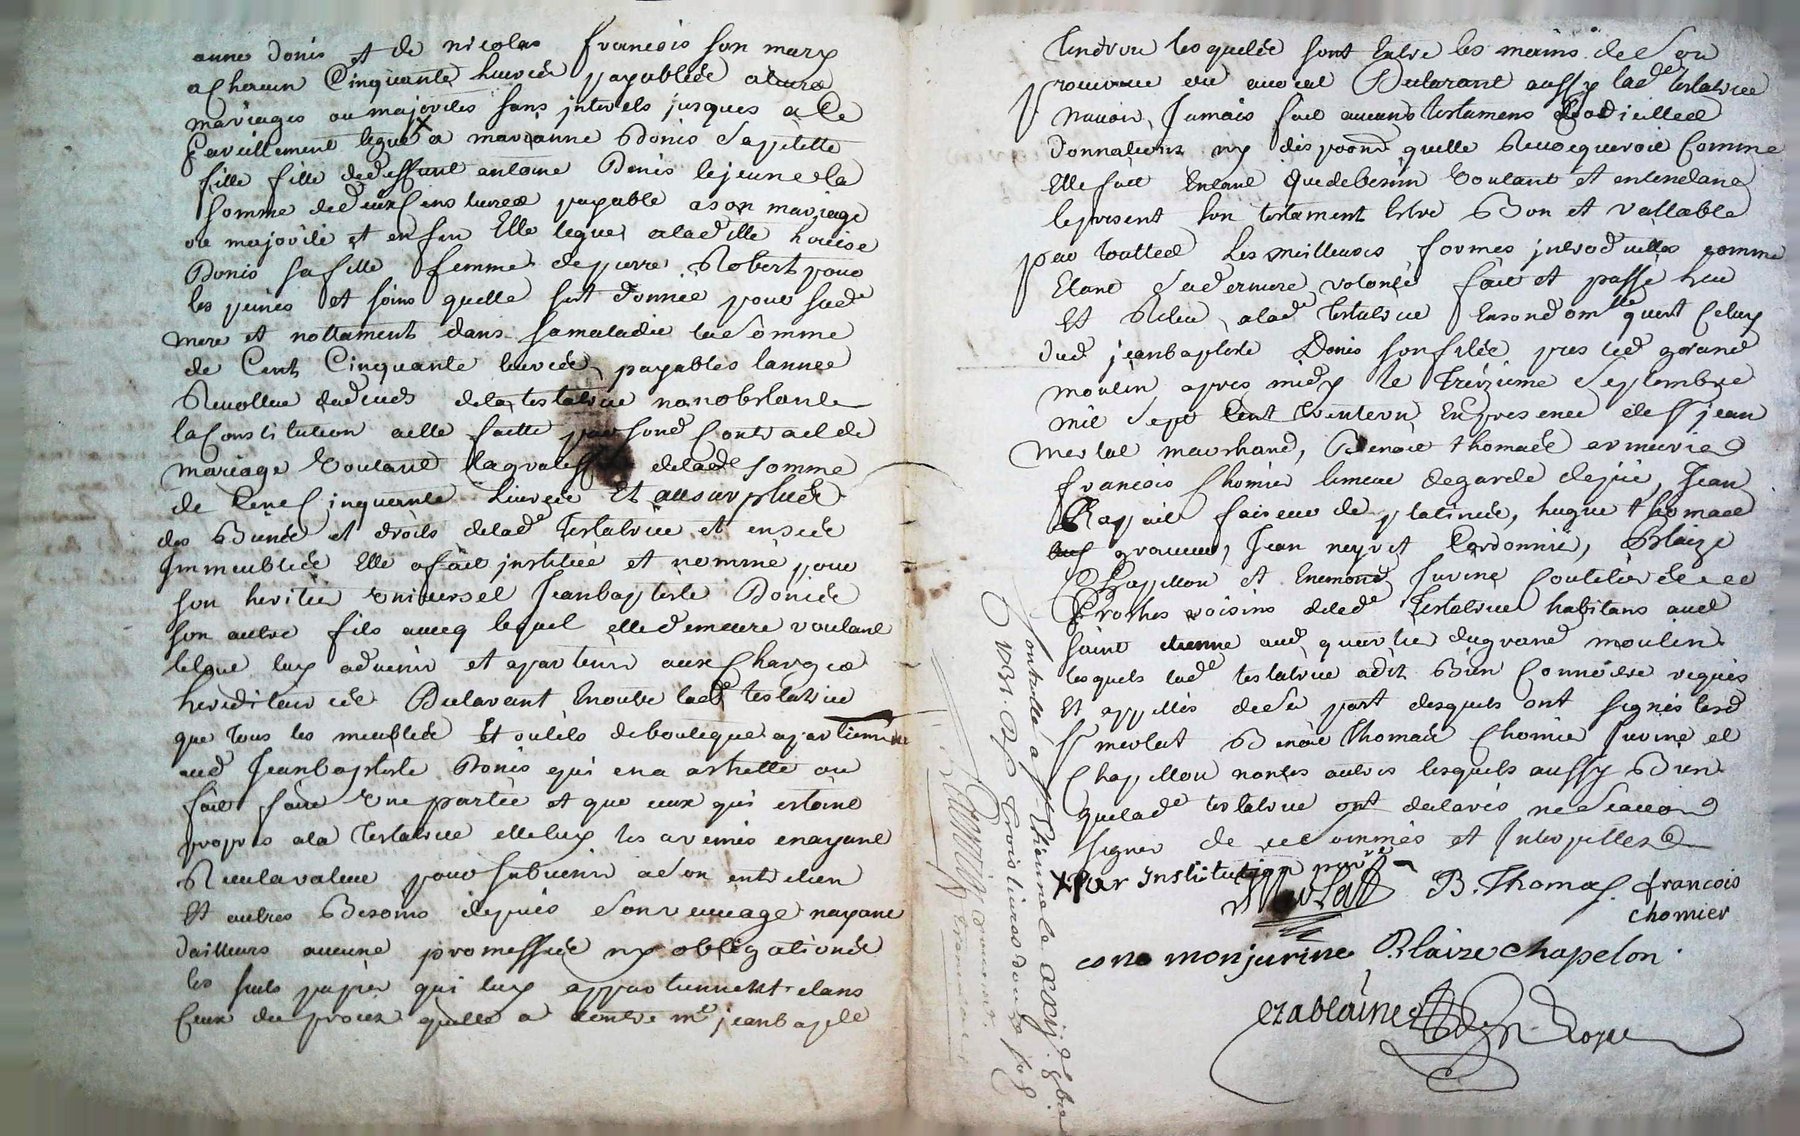 anne Donis et de nicolas francois son mary
a chacun Cinquante livres payables a leurs
mariages ou majorites sans interets jusques a le
Pareillement legue X a marianne Donis sa petitte
fille fille dud deffunt antoine Donis le jeune la
somme de deux Cens livres payable a son mariage
ou majorité et enfin Elle legue a lad
Donis sa fille femme de pierre Robert pour
les peines et soins quelle s'est donnée pour sad
mere et nottament dans sa maladie la somme
de Cent Cinquante livres payables lannee
Revollue du deceds de la testatrice nonobstant
la Constitution a elle faitte par sond Contract de
mariage Voulant de lad somme
de Cent Cinquante Livres Et au surplus
des Biens et droits de lad Testatrice et en ses
Immeubles Elle a fait institué et nommé pour
son heritier Universel Jean baptiste Donis
son autre fils avecq lequel elle demeure voulant
le tout luy advenir et apartenir aux Charges
hereditaires Declarant En outre lad testatrice
que tous les meubles Et outils de boutique apartiennent
aud Jean baptiste Donis qui en a achetté ou
fait faire Une partie et que ceux qui estoint
propres a la Testatrice elle luy les a remis en ayant
Receu la valeur pour subvenir a son entretien
Et autres Besoins depuis son veuvage nayant
dailleurs aucune promesses ny obligations
les seuls papiers qui luy appartiennent dans
Ceux du procez quelle a contre me jean baptiste
lesquels sont Entre les mains de son
procureur ou avocat Declarant aussy lad testatrice
n'avoir Jamais fait aucuns testamens Codicilles
Donnations ny dispoons quelle Revoqueroit Comme
Elle fait Entant que de besoin Voulant et entendant
le present son testament Estre Bon et vallable
par touttes les meilleures formes comme
Etant sa derniere volonté fait et passé leu
Et Releu a lad Testatrice En son domlle quest Celuy
dud jean baptiste Donis son fils pres led grand
moulin apres midy le treizieme Septembre
mil sept Cent trente un En presence de Sr jean
merlat marchand, Benoit thomas armurier
francois Chomier limeur de garde depée, Jean
Chappail faiseur de platines, hugue thomas
graveur, Jean neyret Cordonnier, Blaize
Chapellon et Enemond Jurine Coutelier
Proches voisins de lad Testatrice habitans aud
saint etienne aud quartier du grand moulin
lesquels lad testatrice a dit Bien Connoitre requis
Et appellés de sa part desquels ont signés lesd
Sr merlat Benoit thomas Chomier Jurine et
Chapellon non les autres lesquels aussy Bien
que lad testatrice ont declarés ne scavoir
signer de ce sommés et Interpellés
X Par Institution
Merlat B. Thomas francois
chomier
monjurine Blaize chapelon
Controllé a St Etienne le
1731. Reçu trois livres douze sols